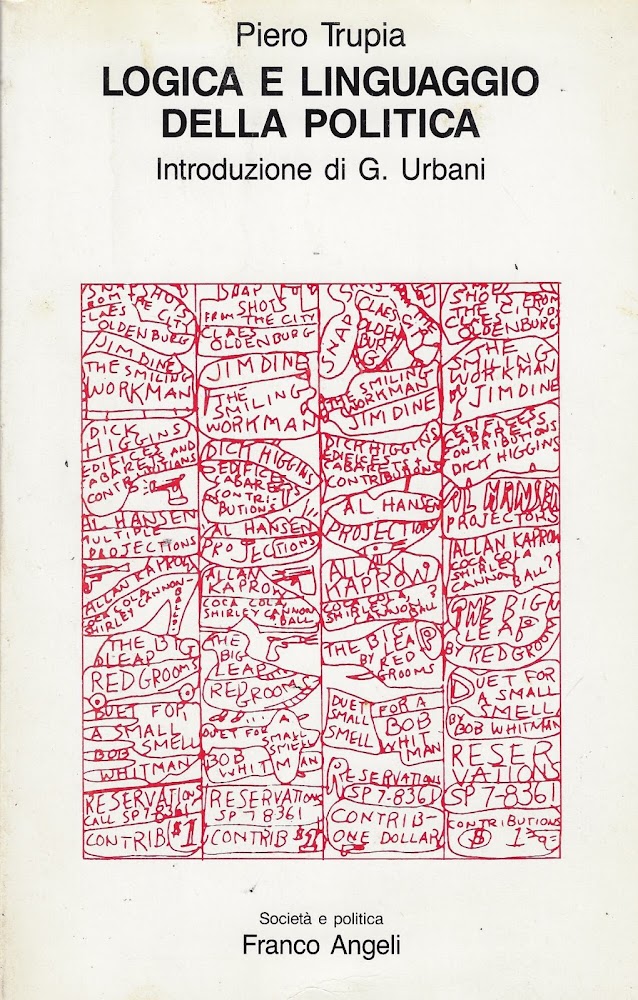 Piero Trupia
LOGICA E LINGUAGGIO
DELLA POLITICA
Introduzione di G. Urbani
SNAPSHOTS
FROM THE CITY
CLAES
OLDENBURG
JIM DINE
THE SMILING
WORKMAN
DICK
HIGGINS
EDIFICES
CABARETS AND
CONTRIBUTIONS
AL HANSEN
MULTIPLE
PROJECTIONS
ALLAN KAPROW
COCA COLA
SHIRLEY CANNON-
BALL?
THE BIG
LEAP
RED GROOMS
DUET FOR
A SMALL
SMELL
BOB
WHITMAN
RESERVATIONS
CALL SP 7-8361
CONTRIB $1
SNAP
SHOTS
FROM THE CITY
CLAES
OLDENBURG
JIM DINE
THE
SMILING
WORKMAN
DICK HIGGINS
EDIFICES
CABARETS
CONTRI-
BUTIONS
AL HANSEN
PROJECTIONS
ALLAN
KAPROW
COCA COLA
SHIRLEY CANNON
BALL
THE
BIG
LEAP
RED GROOMS
DUET FOR A
SMALL
SMELL
BOB
WHITMAN
RESERVATIONS
SP 7 8361
CONTRIB $1
SNAP
CITY
CLAES
OLDEN
BUR
G
THE SMILING
WORKMAN
JIM DINE
DICK HIGGINS
EDIFICES
CABARETS
CONTRIBUTIONS
AL HANSEN
PROJECTIONS
ALLAN
KAPROW
COCA COLA
SHIRLEY
CANNONBALL
THE BIG
LEAP
BY RED
GROOMS
DUET
SMALL
SMELL
FOR A
BOB
WHIT
MAN
RESERVATIONS
SP 7-8361
CONTRIB-
ONE DOLLAR
SNAP
SHOTS FROM
THE CITY
CLAES
OLDENBURG
THE
SMILING
WORKMAN
BY JIM DINE
CONTRIBUTIONS
DICK HIGGINS
AL HANSEN
PROJECTORS
ALLAN
KAPROW
COCA COLA
SHIRLEY
CANNON BALL?
THE BIG
LEAP
BY RED GROOMS
DUET FOR
A SMALL
SMELL
BY BOB WHITMAN
RESER
VATIONS
SP 7-8361
CONTRIBUTIONS
$ 1
Società e politica
Franco Angeli